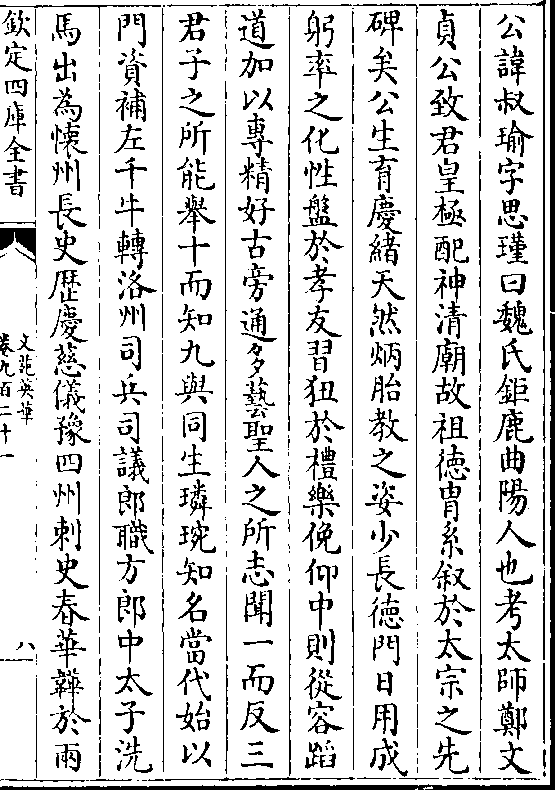 公諱叔瑜字思瑾曰魏氏鉅鹿曲陽人也考太師鄭文
貞公致君皇極配神清廟故祖徳胄系叙於太宗之先
碑矣公生育慶緒天然炳胎教之姿少長徳門日用成
躬率之化性盤於孝友習狃於禮樂俛仰中則從容蹈
道加以專精好古旁通多藝聖人之所志聞一而反三
君子之所能舉十而知九與同生璘琬知名當代始以
門資補左千牛轉洛州司兵司議郎職方郎中太子洗
馬出為懷州長史歴慶慈儀豫四州刺史春華韡於兩
欽定四庫全書
文苑英華
卷九百二十一
八